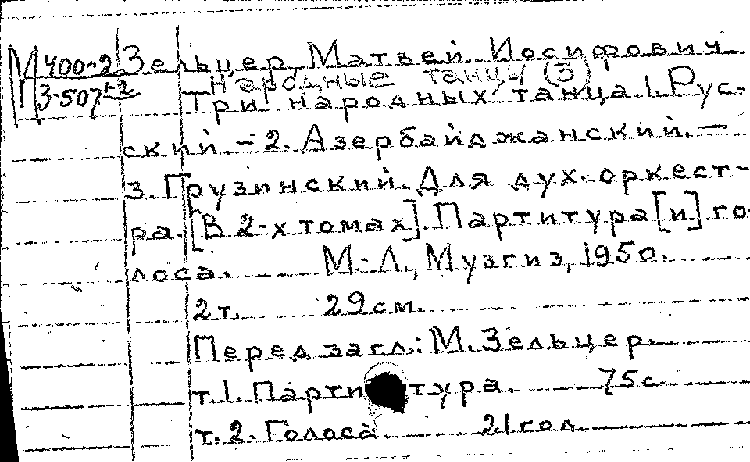 М 400-2 Зельцер, Матвей Иосифович
Народные танцы (3)
З-507 Три народных танца 1. Рус-
ский. – 2. Азербайджанский. –
3. Грузинский. Для дух. оркест-
ра. [В 2-х томах]. Партитура [и] го-
лоса. М.-Л., Музгиз, 1950.
2 т. 29 см.
Перед загл.: М. Зельцер.
т. 1. Партитура. 75 с
т. 2. Голоса 21 гол.